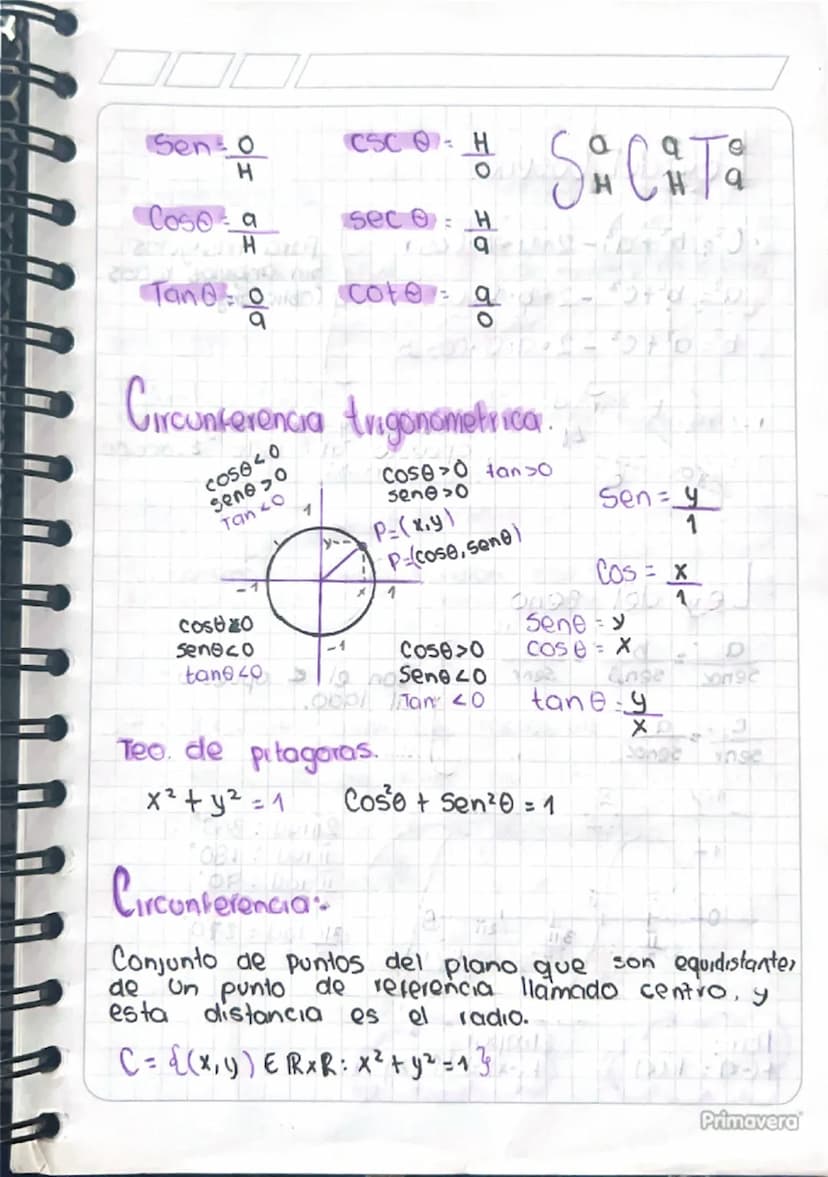 Sen = O/H   csc θ = H/O   S a/H C a/H T o/a
Cosθ = a/H   sec θ = H/a
Tanθ = O/a   cotθ = a/O
Circunferencia trigonometrica.
cosθ<0
senθ>0
Tan<0
cosθ>0 tan>0
senθ>0
1
y
P=(x,y)
P=(cosθ, senθ)
-1
x
1
-1
Sen = y/1
Cos = x/1
cosθ<0
senθ<0
tanθ<0
Cosθ>0
Senθ<0
Tan <0
Senθ = y
cosθ = x
tanθ = y/x
Teo. de pitagoras.
x² + y² = 1   Cos²θ + Sen²θ = 1
Circunferencia:
Conjunto de puntos del plano que son equidistantes
de un punto de referencia llamado centro, y
esta distancia es el radio.
C = {(x,y) ∈ ℝxℝ: x² + y² = 1}
Primavera